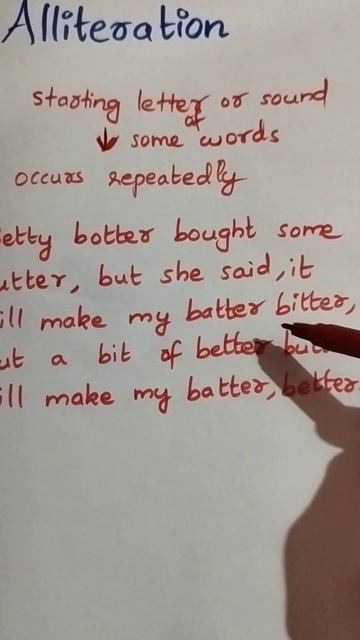 Alliteration
starting letter or sound
of
some words
occurs repeatedly
etty botter bought some
utter, but she said, it
ill make my batter bitter,
ut a bit of better but
ill make my batter, better